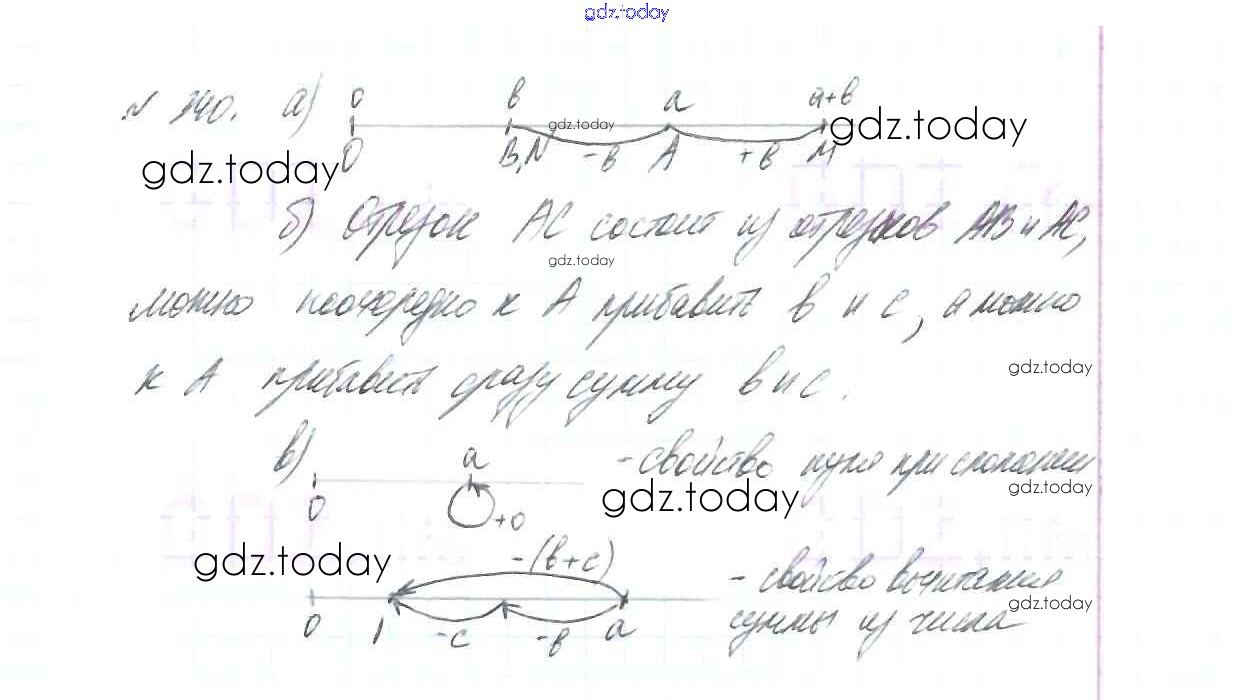 gdz.today
N 340. а) 0 в а а+в
gdz.today gdz.today
gdz.today O B,N -в A +в M
б) Отрезок АС состоит из отрезков АВ и АС,
gdz.today
можно поочередно к А прибавить в и с, а можно
gdz.today
к А прибавить сразу сумму в и с.
в) а - свойство нуля при сложении
gdz.today gdz.today
0 +0
gdz.today -(в+с) - свойство вычитания
gdz.today
0 -с -в а суммы из числа